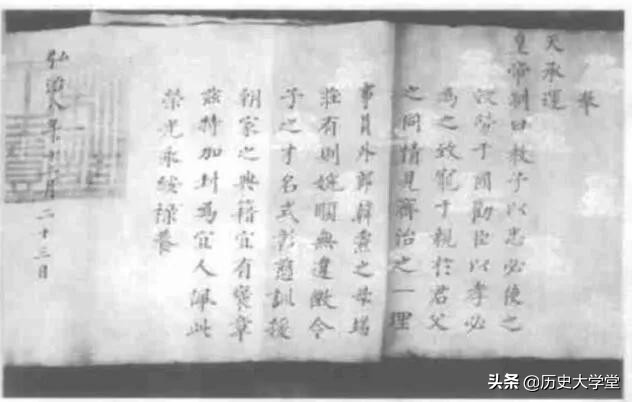 奉
天承運
皇帝制曰教子以忠必使之
效勞于國勸臣以孝必
為之致寵于親於君父
之同情見濟治之一理
事員外郎韓之母
莊有則婉順無違徽令
子之才名式彰慈訓援
朝家之典籍宜有褒章
茲特加封為宜人佩此
榮光永綏祿養
弘治八年十月二十三日
头条 @历史大学堂